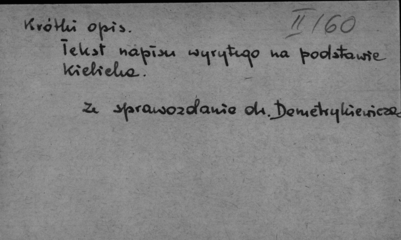 Krótki opis. II/60
Tekst napisu wyrytego na podstawie
Kielicha.
Ze sprawozdania dr. Demetrykiewicza